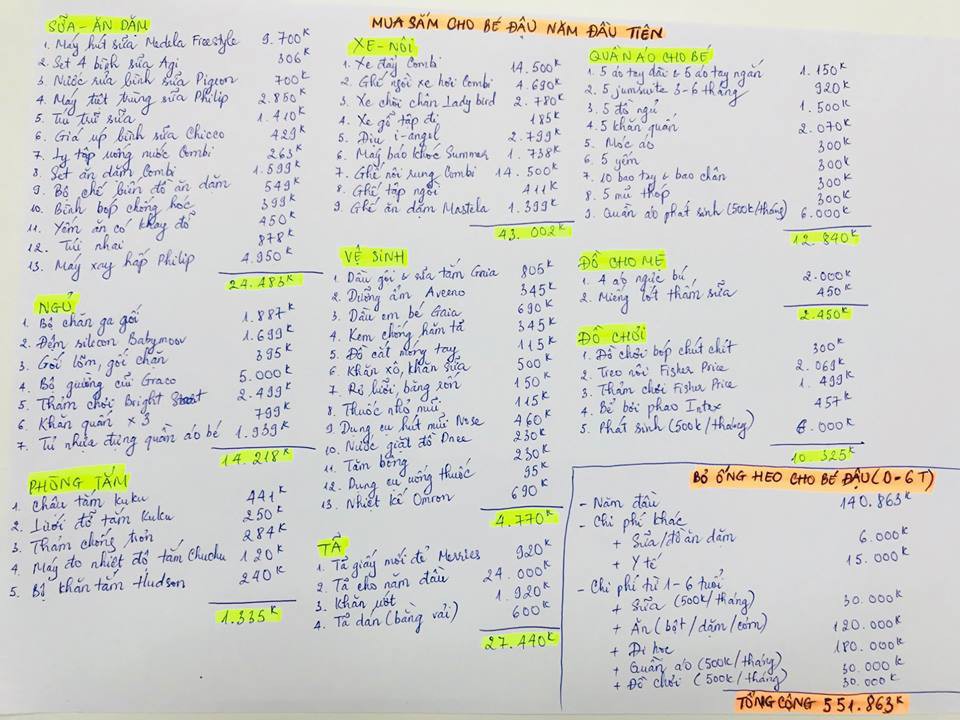 MUA SẮM CHO BÉ ĐẬU NĂM ĐẦU TIÊN
SỮA - ĂN DẶM
1. Máy hút sữa Medela Freestyle 9.700K
2. Set 4 bình sữa Agi 306K
3. Nước rửa bình sữa Pigeon 700K
4. Máy tiệt trùng sữa Philip 2.850K
5. Túi trữ sữa 1.410K
6. Giá up bình sữa Chicco 429K
7. Ly tập uống nước Combi 263K
8. Set ăn dặm Combi 1.599K
9. Bộ chế biến đồ ăn dặm 549K
10. Bình bóp chống hóc 399K
11. Yếm ăn có khay đổ 450K
12. Túi nhai 878K
13. Máy xay hấp Philip 4.950K
24.483K
NGỦ
1. Bộ chăn ga gối 1.887K
2. Đệm silicon Babymoov 1.699K
3. Gối lõm, gối chặn 395K
4. Bộ giường cũi Graco 5.000K
5. Thảm chơi Bright 2.499K
6. Khăn quấn x 3 799K
7. Tủ nhựa đựng quần áo bé 1.939K
14.218K
PHÒNG TẮM
1. Chậu tắm Kuku 441K
2. Lưới đỡ tắm Kuku 250K
3. Thảm chống trơn 284K
4. Máy đo nhiệt độ tắm Chuchu 120K
5. Bộ khăn tắm Hudson 240K
1.335K
XE - NÔI
1. Xe đẩy Combi 14.500K
2. Ghế ngồi xe hơi Combi 4.690K
3. Xe chòi chân Lady bird 2.780K
4. Xe gỗ tập đi 185K
5. Địu i-angel 2.799K
6. Máy báo khóc Summer 1.738K
7. Ghế nôi rung Combi 14.500K
8. Ghế tập ngồi 411K
9. Ghế ăn dặm Mastela 1.399K
43.002K
VỆ SINH
1. Dầu gội & sữa tắm Gaia 805K
2. Dưỡng ẩm Aveeno 345K
3. Dầu em bé Gaia 690K
4. Kem chống hăm tã 345K
5. Đồ cắt móng tay 115K
6. Khăn xô, khăn sữa 500K
7. Rơ lưỡi, băng rốn 150K
8. Thuốc nhỏ mũi 115K
9. Dụng cụ hút mũi Nose 460K
10. Nước giặt đồ Dnee 230K
11. Tăm bông 230K
12. Dụng cụ uống thuốc 95K
13. Nhiệt kế Omron 690K
4.770K
TÃ
1. Tã giấy mới đẻ Merries 920K
2. Tã cho năm đầu 24.000K
3. Khăn ướt 1.920K
4. Tã dán (bằng vải) 600K
27.440K
QUẦN ÁO CHO BÉ
1. 5 áo tay dài & 5 áo tay ngắn 1.150K
2. 5 jumsuite 3-6 tháng 920K
3. 5 đồ ngủ 1.500K
4. 5 khăn quấn 2.070K
5. Móc áo 300K
6. 5 yếm 300K
7. 10 bao tay & bao chân 300K
8. 5 mũ thóp 300K
9. Quần áo phát sinh (500K/tháng) 6.000K
12.840K
ĐỒ CHO MẸ
1. 4 áo ngực bú 2.000K
2. Miếng lót thấm sữa 450K
2.450K
ĐỒ CHƠI
1. Đồ chơi bóp chút chít 300K
2. Treo nôi Fisher Price 2.069K
3. Thảm chơi Fisher Price 1.499K
4. Bể bơi phao Intex 457K
5. Phát sinh (500K/tháng) 6.000K
10.325K
BỎ ỐNG HEO CHO BÉ ĐẬU (0-6T)
- Năm đầu 140.863K
- Chi phí khác
+ Sữa/đồ ăn dặm 6.000K
+ Y tế 15.000K
- Chi phí từ 1-6 tuổi
+ Sữa (500K/tháng) 30.000K
+ Ăn (bột/dặm/cơm) 120.000K
+ Đi học 180.000K
+ Quần áo (500K/tháng) 30.000K
+ Đồ chơi (500K/tháng) 30.000K
TỔNG CỘNG 551.863K